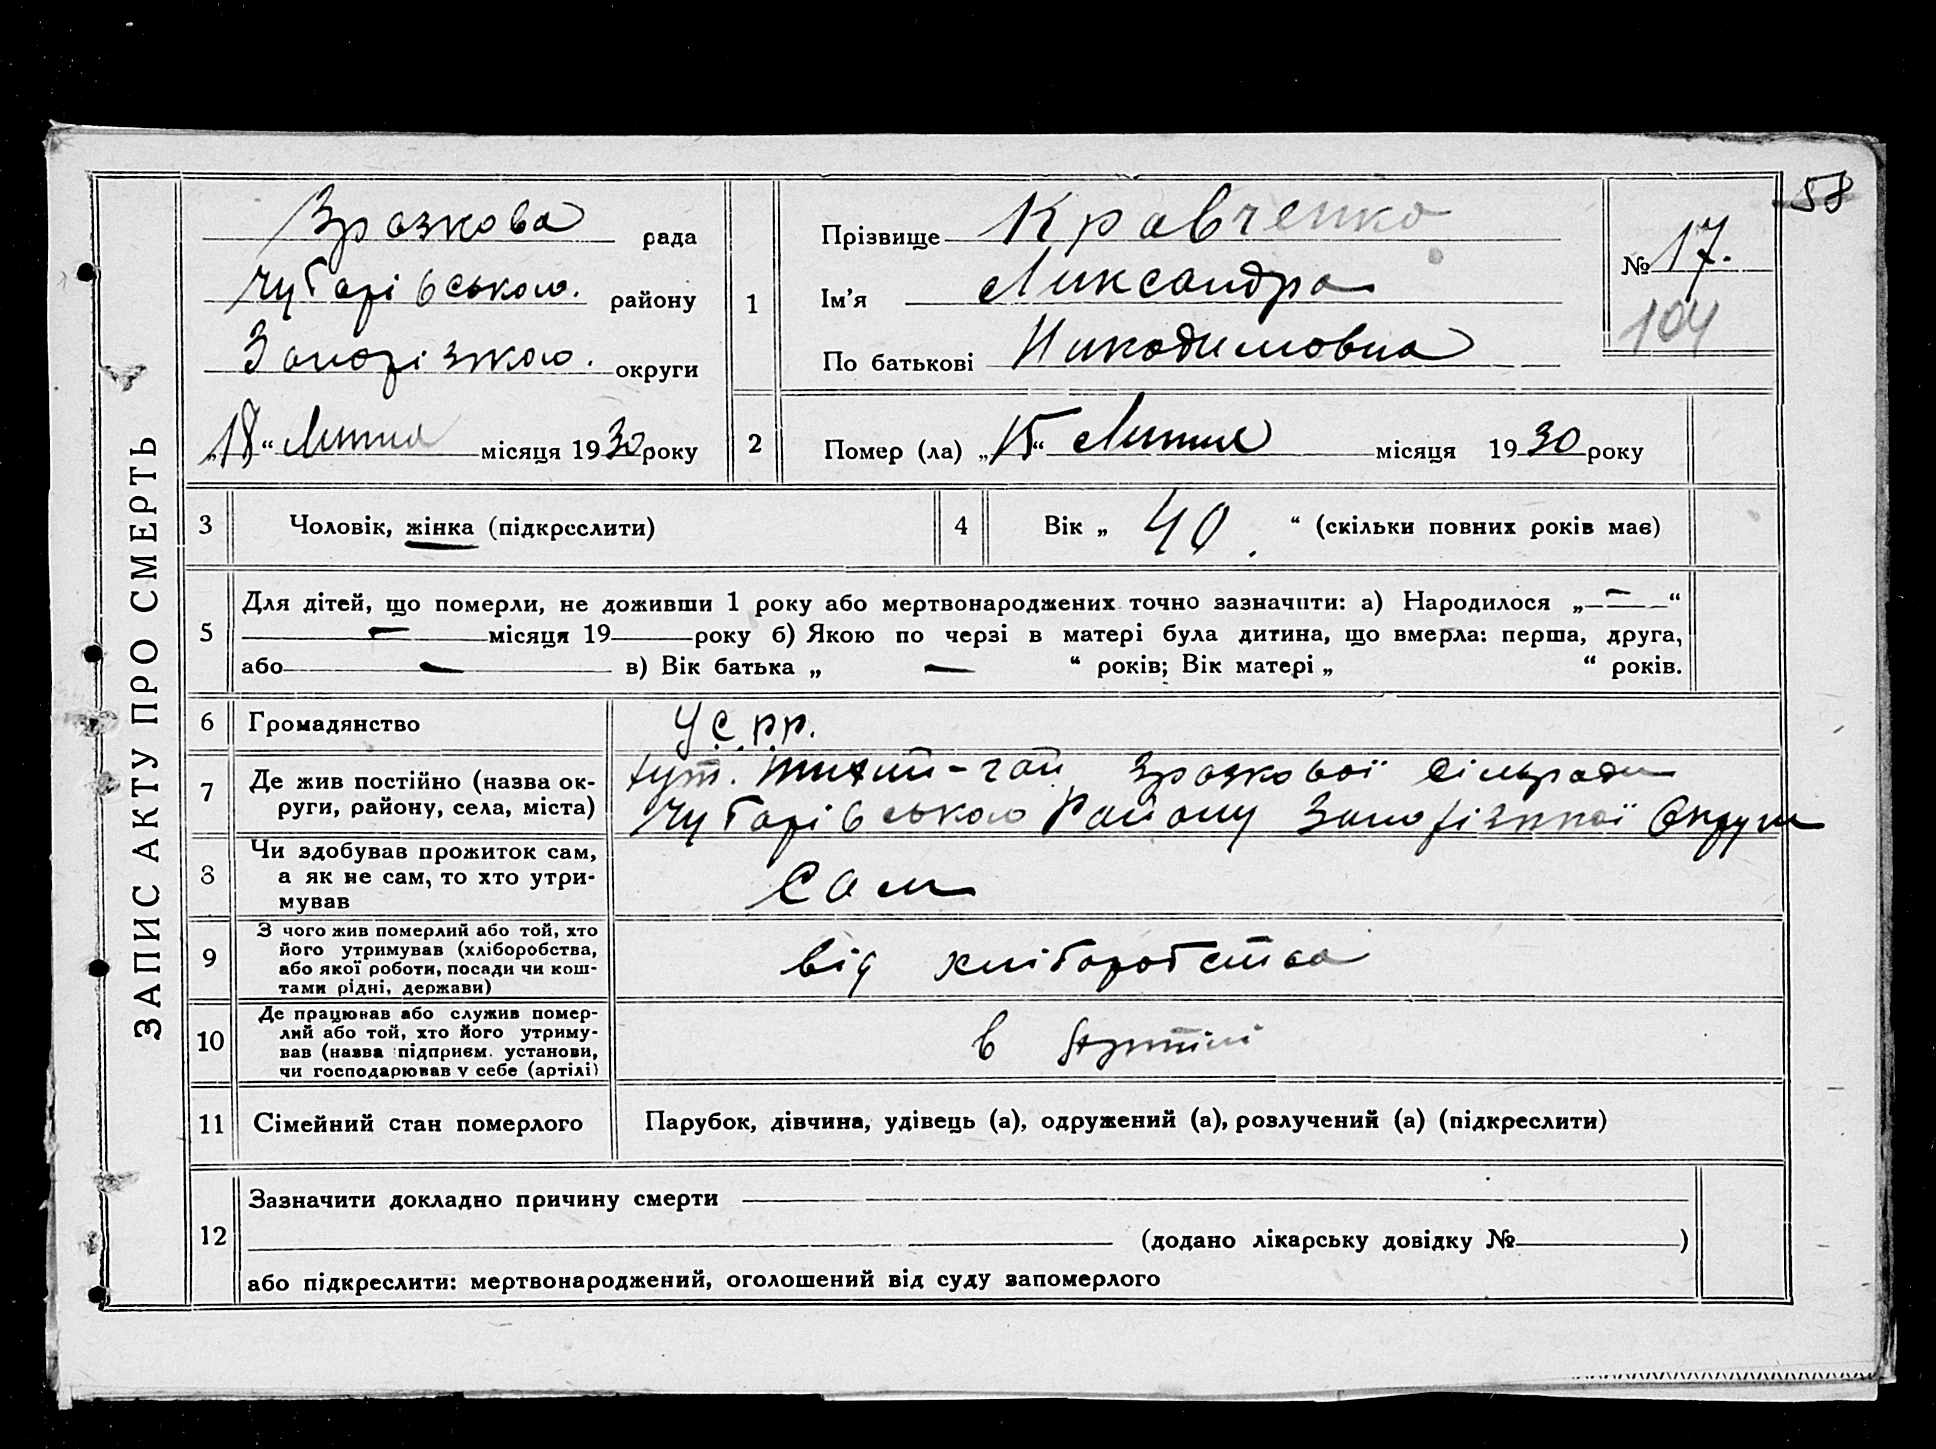 58
ЗАПИС АКТУ ПРО СМЕРТЬ
Зразкова рада
Чубарівського. району
Запорізкою. округи
„18“ Липня місяця 1930 року
1
Прізвище Кравченко
Ім’я Ликсандра
По батькові Никодимовна
№ 17.
104
2
Помер (ла) „15“ Липня місяця 1930 року
3
Чоловік, жінка (підкреслити)
4
Вік „ 40. “ (скільки повних років має)
5
Для дітей, що померли, не доживши 1 року або мертвонароджених точно зазначити: а) Народилося „—“
— місяця 19 року б) Якою по черзі в матері була дитина, що вмерла: перша, друга,
або — в) Вік батька „ — “ років; Вік матері „ “ років.
6
Громадянство
УСРР.
7
Де жив постійно (назва ок-
руги, району, села, міста)
хут. Тихий-гай Зразкової сільради
Чубарівського Району Запорізкої Округи
8
Чи здобував прожиток сам,
а як не сам, то хто утри-
мував
Сам
9
З чого жив померлий або той, хто
його утримував (хліборобства,
або якої роботи, посади чи кош-
тами рідні, держави)
від хліборобства
10
Де працював або служив помер-
лий або той, хто його утриму-
вав (назва підприєм. установи,
чи господарював у себе (артілі)
в Артілі
11
Сімейний стан померлого
Парубок, дівчина, удівець (а), одружений (а), розлучений (а) (підкреслити)
12
Зазначити докладно причину смерти
(додано лікарську довідку № )
або підкреслити: мертвонароджений, оголошений від суду запомерлого